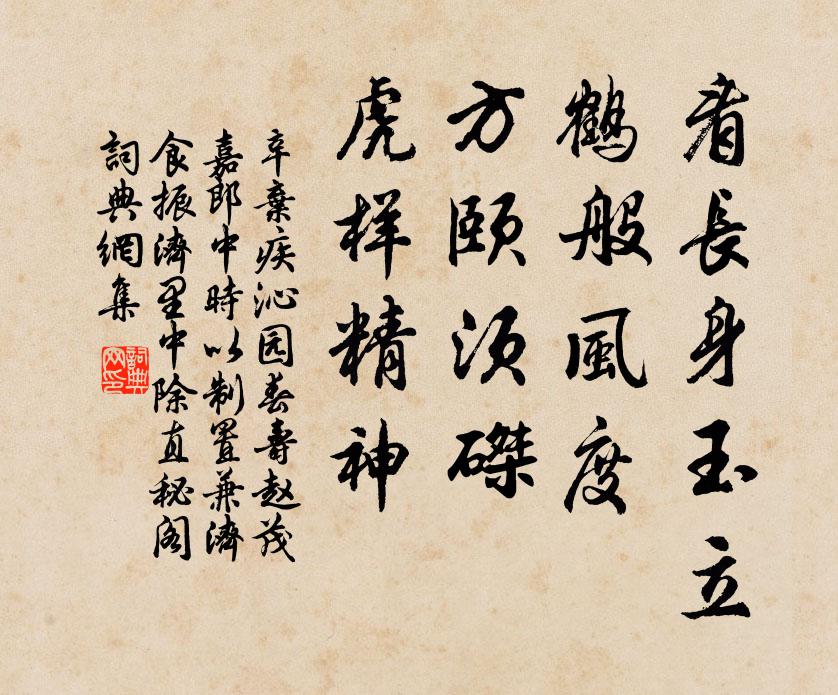 看長身玉立
鶴般風度
方頤須磔
虎样精神
辛棄疾沁园春壽赵茂
嘉郎中時以制置兼濟
食振濟里中除直秘阁
詞典網集
詞典
网印